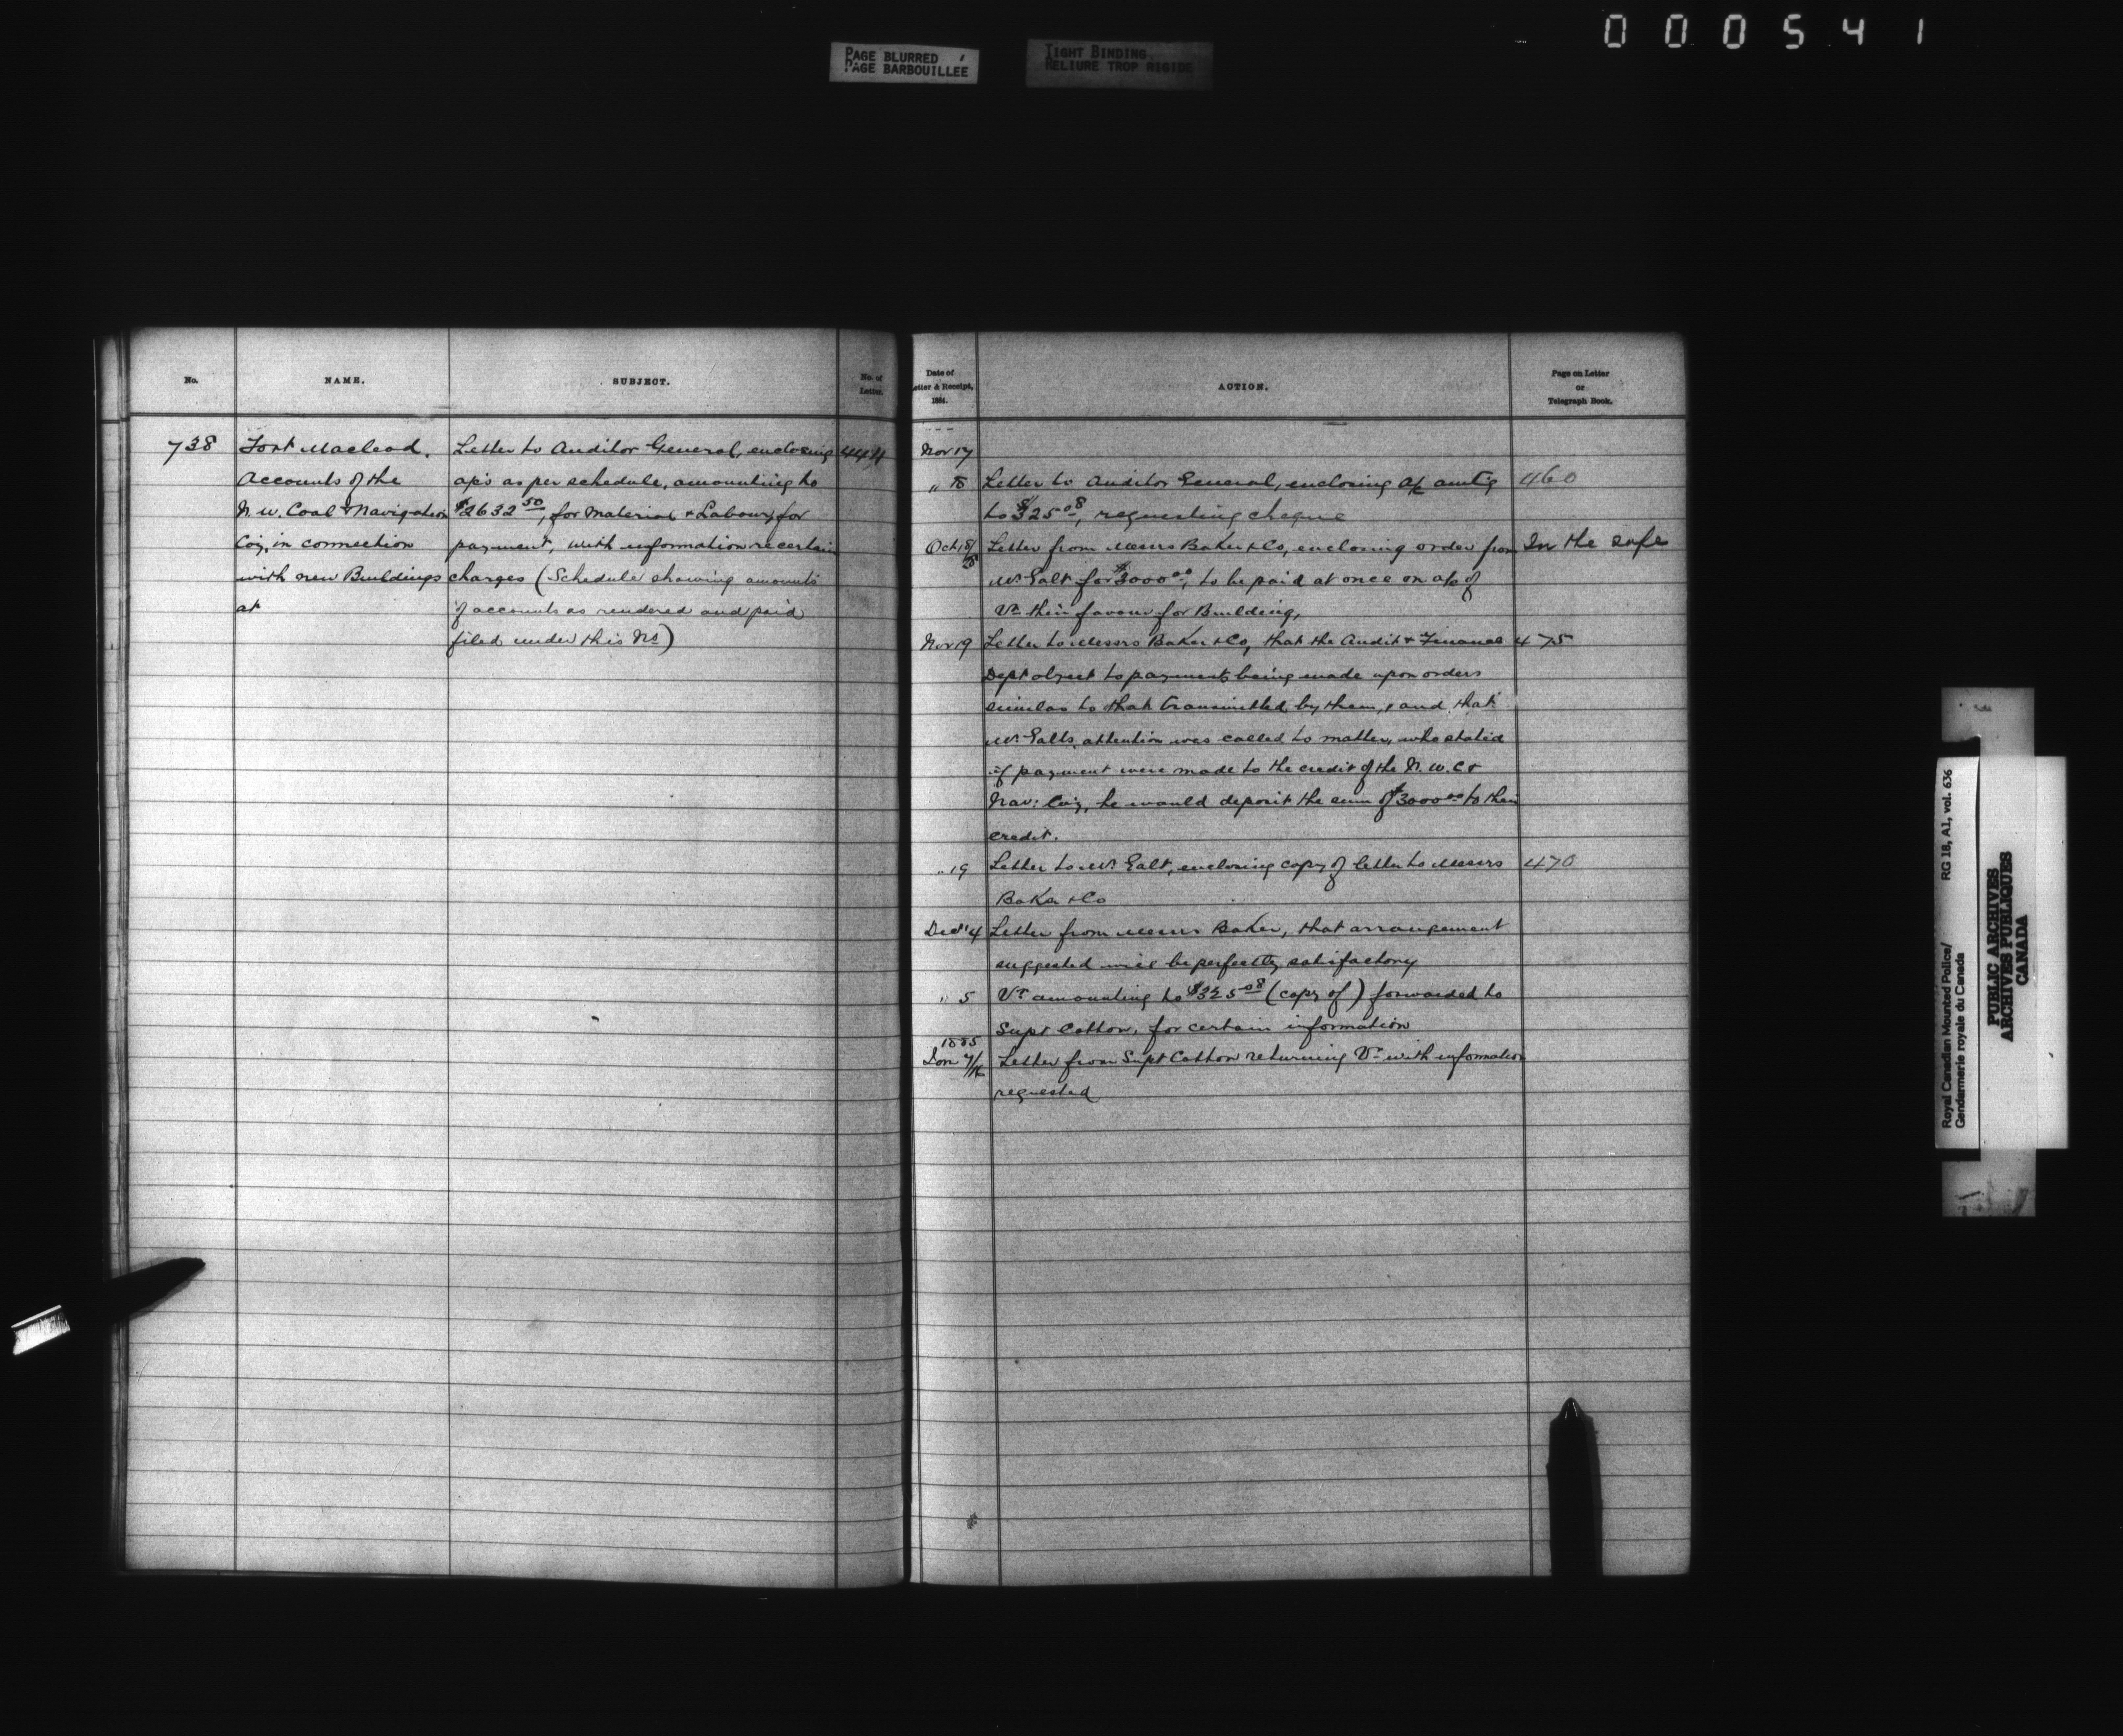 000541
PAGE BLURRED
PAGE BARBOUILLEE
TIGHT BINDING
RELIURE TROP RIGIDE
No.
NAME.
SUBJECT.
No. of
Letter.
738
Fort Macleod.
Accounts of the
N.W. Coal & Navigation
Coy, in connection
with new Buildings
at
Letter to Auditor General, enclosing 444
a/cs as per schedule, amounting to
$2632 50, for Material & Labour, for
payment, with information re certain
charges (Schedule showing amounts
of accounts as rendered and paid
filed under this No)
Date of
Letter & Receipt,
1884.
ACTION.
Page on Letter
or
Telegraph Book.
Nov 17
" 18 Letter to Auditor General, enclosing a/c amtg 460
to $325 08, requesting cheque
Oct 18/25 Letter from Messrs Baker & Co, enclosing order from In the safe
Mr Galt for $3000 00, to be paid at once on a/c of
Vr their favour for Building,
Nov 19 Letter to Messrs Baker & Co, that the Audit & Finance 475
Dept object to payments being made upon orders
similar to that transmitted by them, and that
Mr Galts attention was called to matter, who stated
if payment were made to the credit of the N.W.C &
Nav: Coy, he would deposit the sum of $3000 00 to their
credit.
" 19 Letter to Mr Galt, enclosing copy of letter to Messrs 470
Baker & Co
Decr 4 Letter from Messrs Baker, that arrangement
suggested will be perfectly satisfactory
" 5 Vr amounting to $325 08 (copy of) forwarded to
Supt Cotton, for certain information
1885
Jan 7/16 Letter from Supt Cotton returning Vr with information
requested
Royal Canadian Mounted Police/
Gendarmerie royale du Canada
RG 18, A1, vol. 636
PUBLIC ARCHIVES
ARCHIVES PUBLIQUES
CANADA